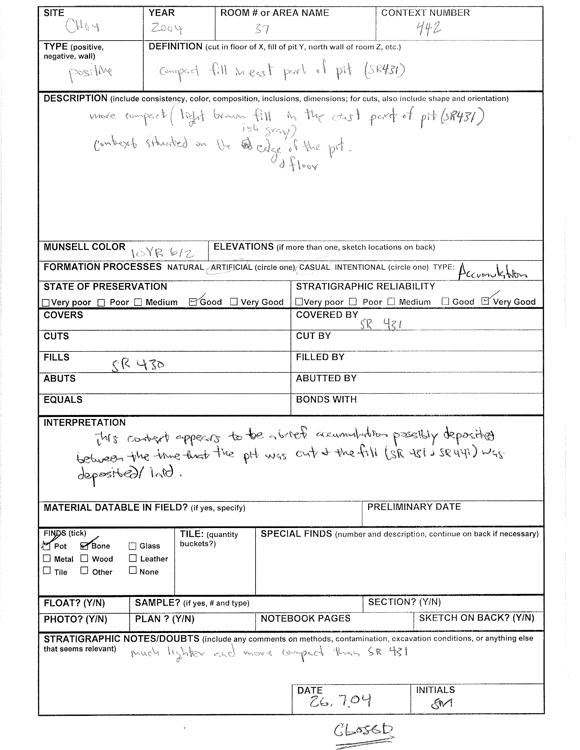 SITE YEAR ROOM # or AREA NAME CONTEXT NUMBER
CH04 2004 37 442
TYPE (positive, negative, wall) DEFINITION (cut in floor of X, fill of pit Y, north wall of room Z, etc.)
positive compact fill in east part of pit (SR431)
DESCRIPTION (include consistency, color, composition, inclusions, dimensions; for cuts, also include shape and orientation)
more compact / light brown fill in the east part of pit (SR431)
ish gray)
context situated on the edge of the pit.
floor
MUNSELL COLOR 10YR 6/2 ELEVATIONS (if more than one, sketch locations on back)
FORMATION PROCESSES NATURAL ARTIFICIAL (circle one) CASUAL INTENTIONAL (circle one) TYPE: Accumulation
STATE OF PRESERVATION STRATIGRAPHIC RELIABILITY
Very poor Poor Medium Good Very Good Very poor Poor Medium Good Very Good
COVERS COVERED BY
SR 431
CUTS CUT BY
FILLS SR 430 FILLED BY
ABUTS ABUTTED BY
EQUALS BONDS WITH
INTERPRETATION
This context appears to be a brief accumulation possibly deposited
between the time that the pit was cut & the fill (SR 431 & SR441) was
deposited/ laid.
MATERIAL DATABLE IN FIELD? (if yes, specify) PRELIMINARY DATE
FINDS (tick) TILE: (quantity buckets?) SPECIAL FINDS (number and description, continue on back if necessary)
Pot Bone Glass
Metal Wood Leather
Tile Other None
FLOAT? (Y/N) SAMPLE? (if yes, # and type) SECTION? (Y/N)
PHOTO? (Y/N) PLAN ? (Y/N) NOTEBOOK PAGES SKETCH ON BACK? (Y/N)
STRATIGRAPHIC NOTES/DOUBTS (include any comments on methods, contamination, excavation conditions, or anything else
that seems relevant) much lighter and more compact than SR 431
DATE INITIALS
26.7.04 SM
CLOSED